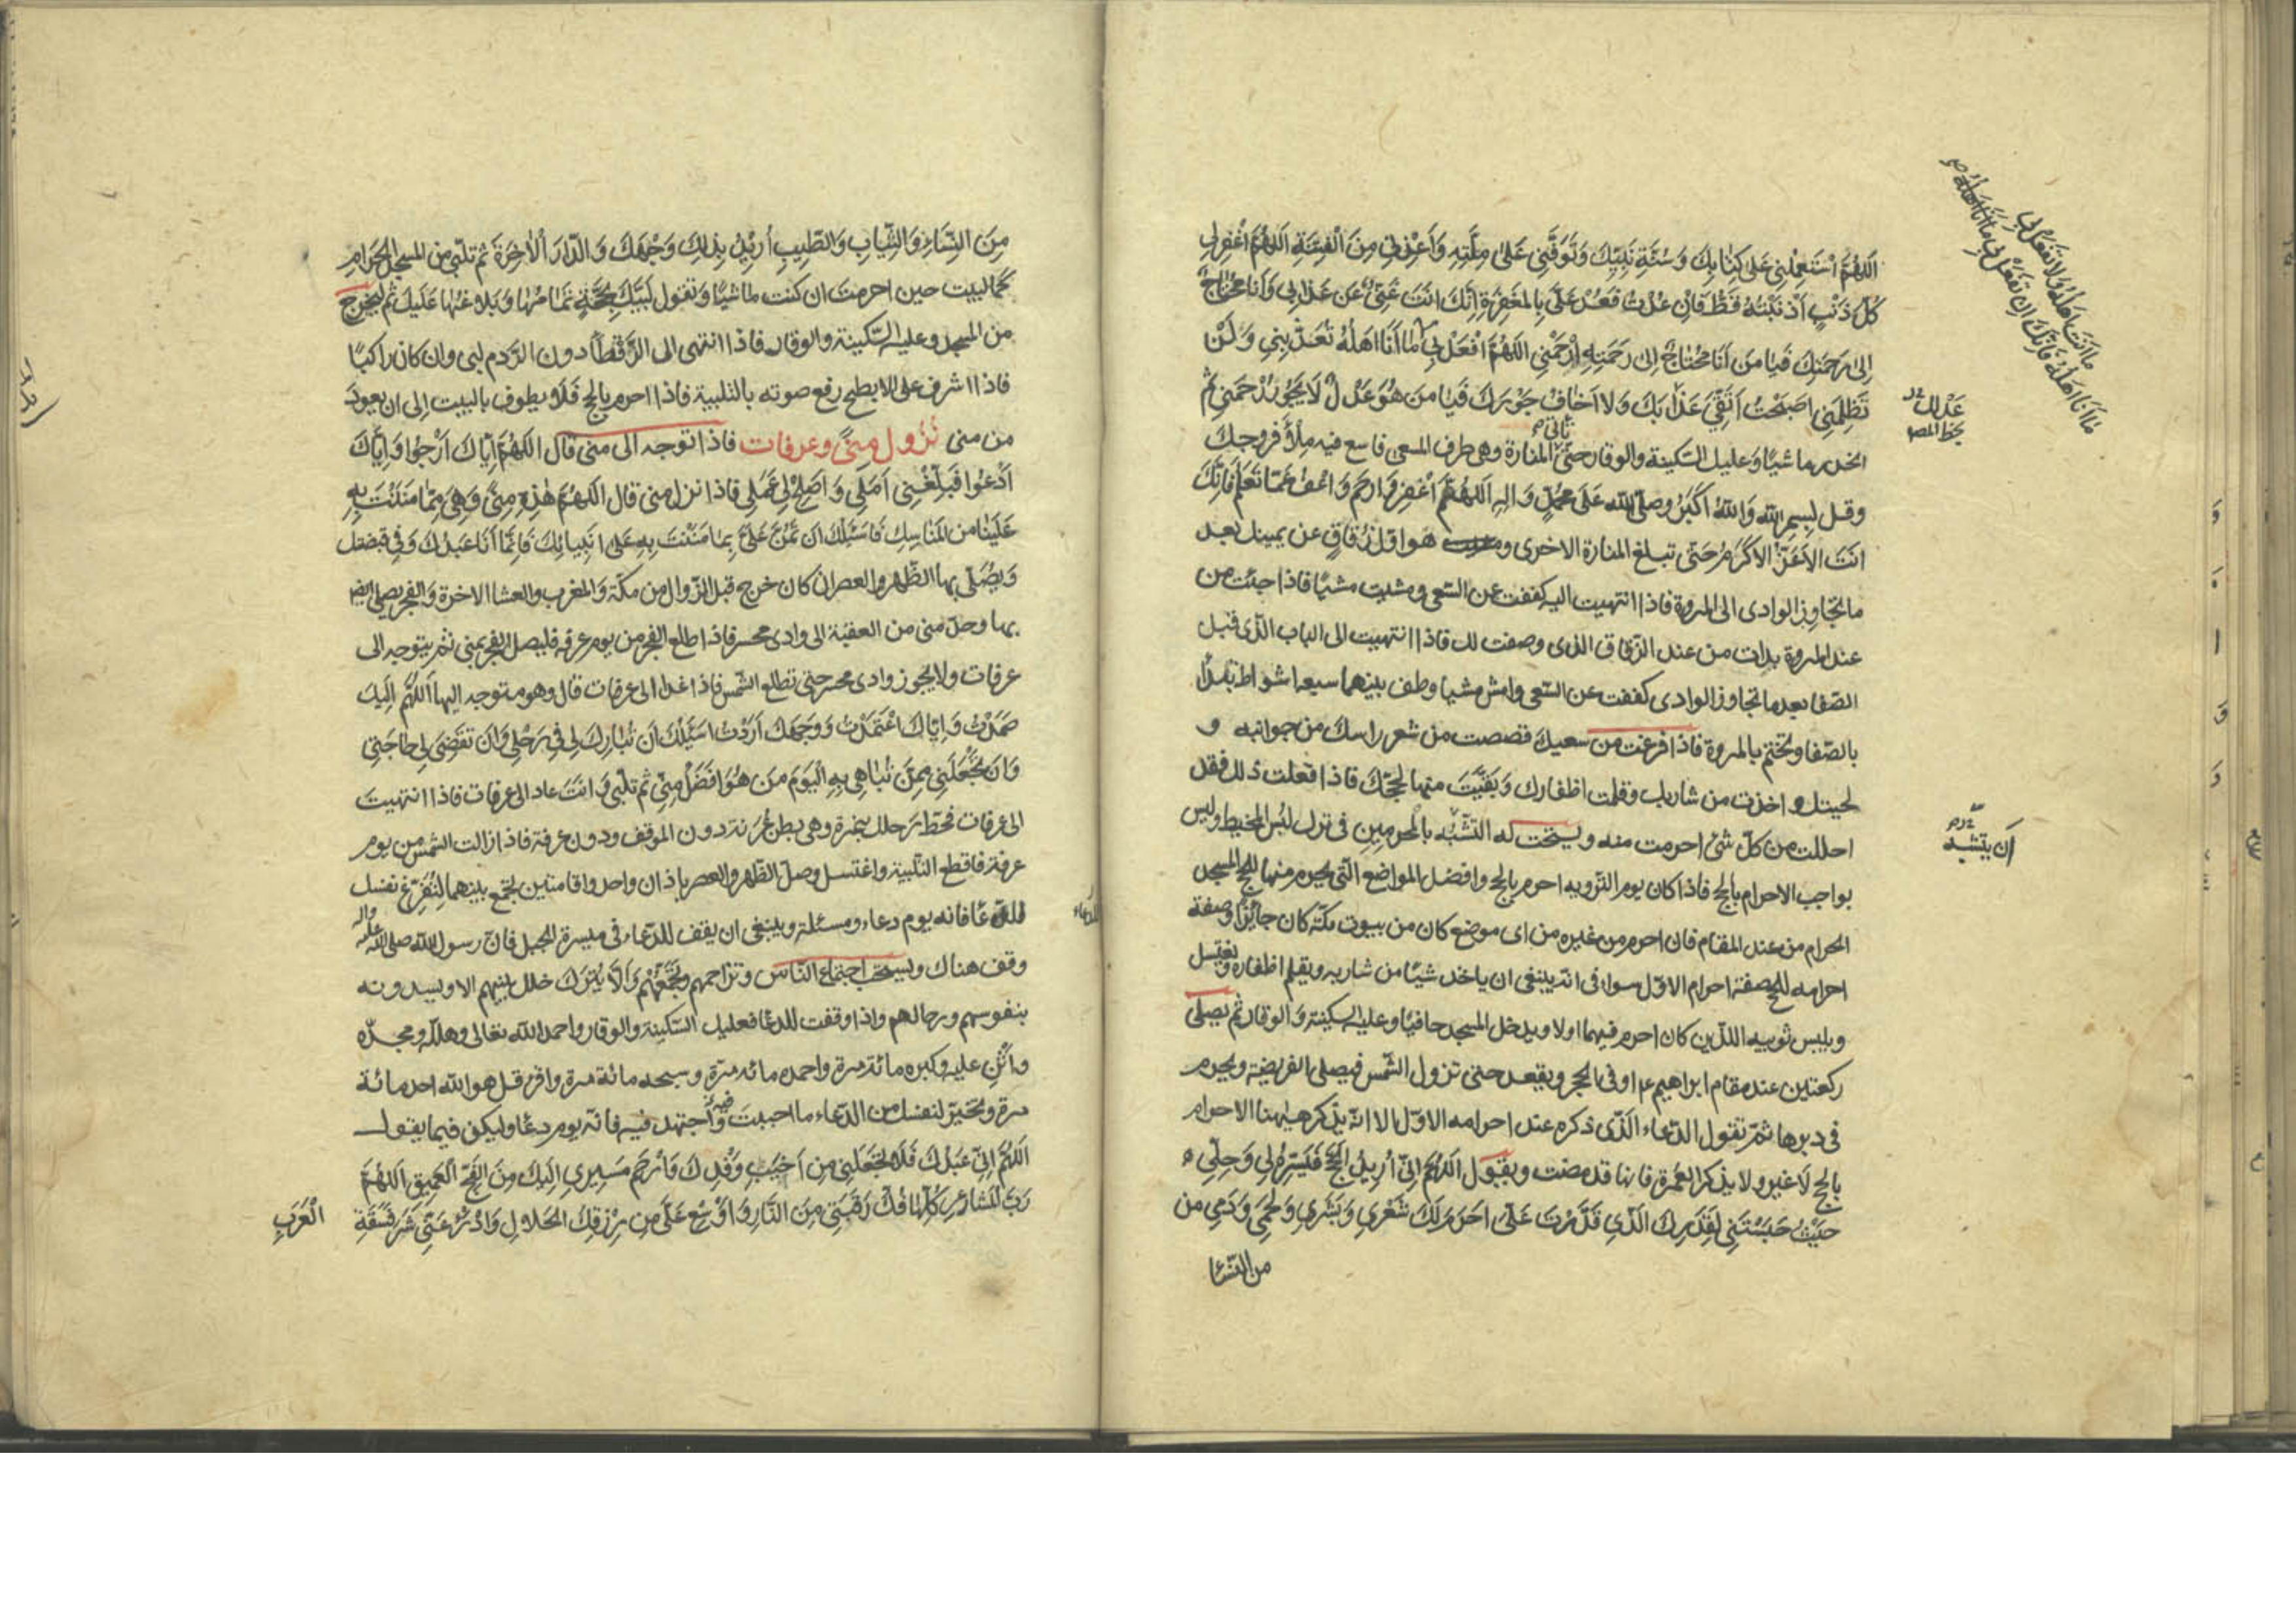 اَللّهُمَّ اسْتَعْمِلْنِي عَلى كِتابِكَ وَسُنَّةِ نَبِيِّكَ وَتَوَفَّنِي عَلى مِلَّتِهِ وَاَعِذْنِي مِنَ الْفِتْنَةِ اَللّهُمَّ اغْفِرْ لِي
كُلَّ ذَنْبٍ اَذْنَبْتُهُ قَطُّ فَاِنْ عُدْتُ فَعُدْ عَلَيَّ بِالْمَغْفِرَةِ اِنَّكَ اَنْتَ غَنِيٌّ عَنْ عَذابِي وَاَنا مُحْتاجٌ
اِلى رَحْمَتِكَ فَيا مَنْ اَنَا مُحْتاجٌ اِلى رَحْمَتِهِ اِرْحَمْنِي اَللّهُمَّ افْعَلْ بِي ما اَنَا اَهْلُهُ تُعَذِّبْنِي وَلَنْ
تَظْلِمَنِي اَصْبَحْتُ اَتَّقِي عَذابَكَ وَلا اَخافُ جَوْرَكَ فَيا مَنْ هُوَ عَدْلٌ لا يَجُورُ ارْحَمْنِي ثم
انحدر ماشيًا وعليك السكينة والوقار حتى تأتي المنارة وهي طرف المسعى فاسع فيه ملأ فروجك
وقل بِسْمِ اللهِ وَاللهُ اَكْبَرُ وَصَلَّى اللهُ عَلى مُحَمَّدٍ وَالِهِ اَللّهُمَّ اغْفِرْ وَارْحَمْ وَاعْفُ عَمّا تَعْلَمُ فَاِنَّكَ
اَنْتَ الْاَعَزُّ الْاَكْرَمُ حتى تبلغ المنارة الاخرى وهو اول زقاق عن يمينك بعد
ما تجاوز الوادى الى المروة فاذا انتهيت اليه كففت عن السعى ومشيت مشيًا فاذا جئت من
عند المروة بدات من عند الزقاق الذى وصفت لك فاذا انتهيت الى الباب الذى قبل
الصفا بعد ما تجاوز الوادى كففت عن السعى وامش مشيا وطف بينهما سبعة اشواط تبدأ
بالصفا وتختم بالمروة فاذا فرغت من سعيك قصصت من شعر راسك من جوانبه و
لحيتك واخذت من شاربك وقلمت اظفارك وبَقَّيْتَ منها لحجك فاذا فعلت ذلك فقد
احللت من كل شئ احرمت منه ويستحب له التشبّه بالمحرمين فى ترك لبس المخيط وليس
بواجب الاحرام بالحج فاذا كان يوم الترويه احرم بالحج وافضل المواضع التى يحرم منها للحج المسجد
الحرام من عند المقام فان احرم من غيره من اى موضع كان من بيوت مكة كان جايزًا وصفة
احرامه للحج صفة احرام الاوّل سواء فى انه ينبغى ان ياخذ شيئًا من شاربه ويقلم اظفاره ويغتسل
ويلبس ثوبيه اللذين كان احرم فيهما اولا ويدخل المسجد حافيًا وعليه السكينة والوقار ثم يصلى
ركعتين عند مقام ابراهيم ع او فى الحجر ويقعد حتى تزول الشمس فيصلى الفريضة ويحرم
فى دبرها ثم تقول الدعاء الذى ذكره عند احرامه الاوّل الا انه يذكر هيهنا الاحرام
بالحج لا غير ولا يذكر العمرة فانها قد مضت ويقول اَللّهُمَّ اِنّى اُرِيدُ الْحَجَّ فَيَسِّرْهُ لِي وَحُلَّنِي
حَيْثُ حَبَسْتَنِي لِقَدَرِكَ الَّذِي قَدَّرْتَ عَلَيَّ اَحْرَمَ لَكَ شَعْرِي وَبَشَرِي وَلَحْمِي وَدَمِي من
من النساء
ما اَنْتَ اَهْلُهُ وَلا تَفْعَلْ بِي
ما اَنَا اَهْلُهُ فَاِنَّكَ اِنْ تَفْعَلْ بِي ما اَنَا اَهْلُهُ
عَدْلٌ
بخط المصـ
اَن يتشبه
مِنَ النِّساءِ وَالثِّيابِ وَالطِّيبِ اُرِيدُ بِذلِكَ وَجْهَكَ وَالدّارَ الْآخِرَةَ ثم تلبّى من المسجد الحرام
كما لبيت حين احرمت ان كنت ماشيًا وتقول لَبَّيْكَ بِحَجَّةٍ تَمامُها وَبَلاغُها عَلَيْكَ ثم ليخرج
من المسجد وعليه السكينة والوقار فاذا انتهى الى الرقطاء دون الردم لبى وان كان راكبًا
فاذا اشرف على الابطح رفع صوته بالتلبية فاذا احرم بالحج فلا يطوف بالبيت الى ان يعود
من منى نزول منىً وعرفات فاذا توجه الى منى قال اَللّهُمَّ اِيّاكَ اَرْجُو وَاِيّاكَ
اَدْعُو فَبَلِّغْنِي اَمَلِي وَاَصْلِحْ لِي عَمَلِي فاذا نزل منى قال اَللّهُمَّ هذِهِ مِنىً وَهِيَ مِمّا مَنَنْتَ بِهِ
عَلَيْنا مِنَ الْمَناسِكِ فَاَسْئَلُكَ اَنْ تَمُنَّ عَلَيَّ بِما مَنَنْتَ بِهِ عَلى اَنْبِيائِكَ فَاِنَّما اَنَا عَبْدُكَ وَفِي قَبْضَتِكَ
ويصلّى بها الظهر والعصر ان كان خرج قبل الزوال من مكة والمغرب والعشاء الاخرة والفجر يصلى ايضا
بها وحدّ منى من العقبة الى وادى محسر فاذا طلع الفجر من يوم عرفه فليصل الفجر بمنى ثم يتوجه الى
عرفات ولا يجوز وادى محسر حتى تطلع الشمس فاذا غدا الى عرفات قال وهو متوجه اليها اَللّهُمَّ اِلَيْكَ
صَمَدْتُ وَاِيّاكَ اعْتَمَدْتُ وَوَجْهَكَ اَرَدْتُ اَسْئَلُكَ اَنْ تُبارِكَ لِي فِي رَحْلِي وَاَنْ تَقْضِيَ لِي حاجَتِي
وَاَنْ تَجْعَلَنِي مِمَّنْ تُباهِي بِهِ الْيَوْمَ مَنْ هُوَ اَفْضَلُ مِنّى ثم تلبى وانت غاد الى عرفات فاذا انتهيت
الى عرفات فحط رحلك بنمرة وهى بطن عُرَنة دون الموقف ودون عرفة فاذا زالت الشمس من يوم
عرفة فاقطع التلبية واغتسل وصل الظهر والعصر باذان واحد واقامتين تجمع بينهما لتُفَرِّغ نفسك
للدعاء فانه يوم دعاء ومسئلة وينبغى ان يقف للدعاء فى ميسرة الجبل فان رسول الله صلى الله عليه واله
وقف هناك ويستحب اجتماع الناس وتزاحمهم وتجمّعهم وَاَلّا يُتْرَكَ خلل بينهم الا ويسدونه
بنفوسهم ورحالهم واذا وقفت للدعاء فعليك السكينة والوقار واحمد الله تعالى وهلّله ومجدّه
واثن عليه وكبره مائة مرة واحمده مائه مرّة وسبحه مائة مرة واقرء قل هو الله احد مائة
مرة وتخيّر لنفسك من الدعاء ما احببت واجتهد فيه فانّه يوم دعاء وليكن فيما يقول
اَللّهُمَّ اِنّى عَبْدُكَ فَلا تَجْعَلْنِي مِنْ اَخْيَبِ وَفْدِكَ وَارْحَمْ مَسِيرِي اِلَيْكَ مِنَ الْفَجِّ الْعَمِيقِ اَللّهُمَّ
رَبَّ الْمَشاعِرِ كُلِّها فُكَّ رَقَبَتِي مِنَ النّارِ وَاَوْسِعْ عَلَيَّ مِنْ رِزْقِكَ الْحَلالِ وَادْرَءْ عَنّى شَرَّ فَسَقَةِ
الْعَرَبِ
للدعاء